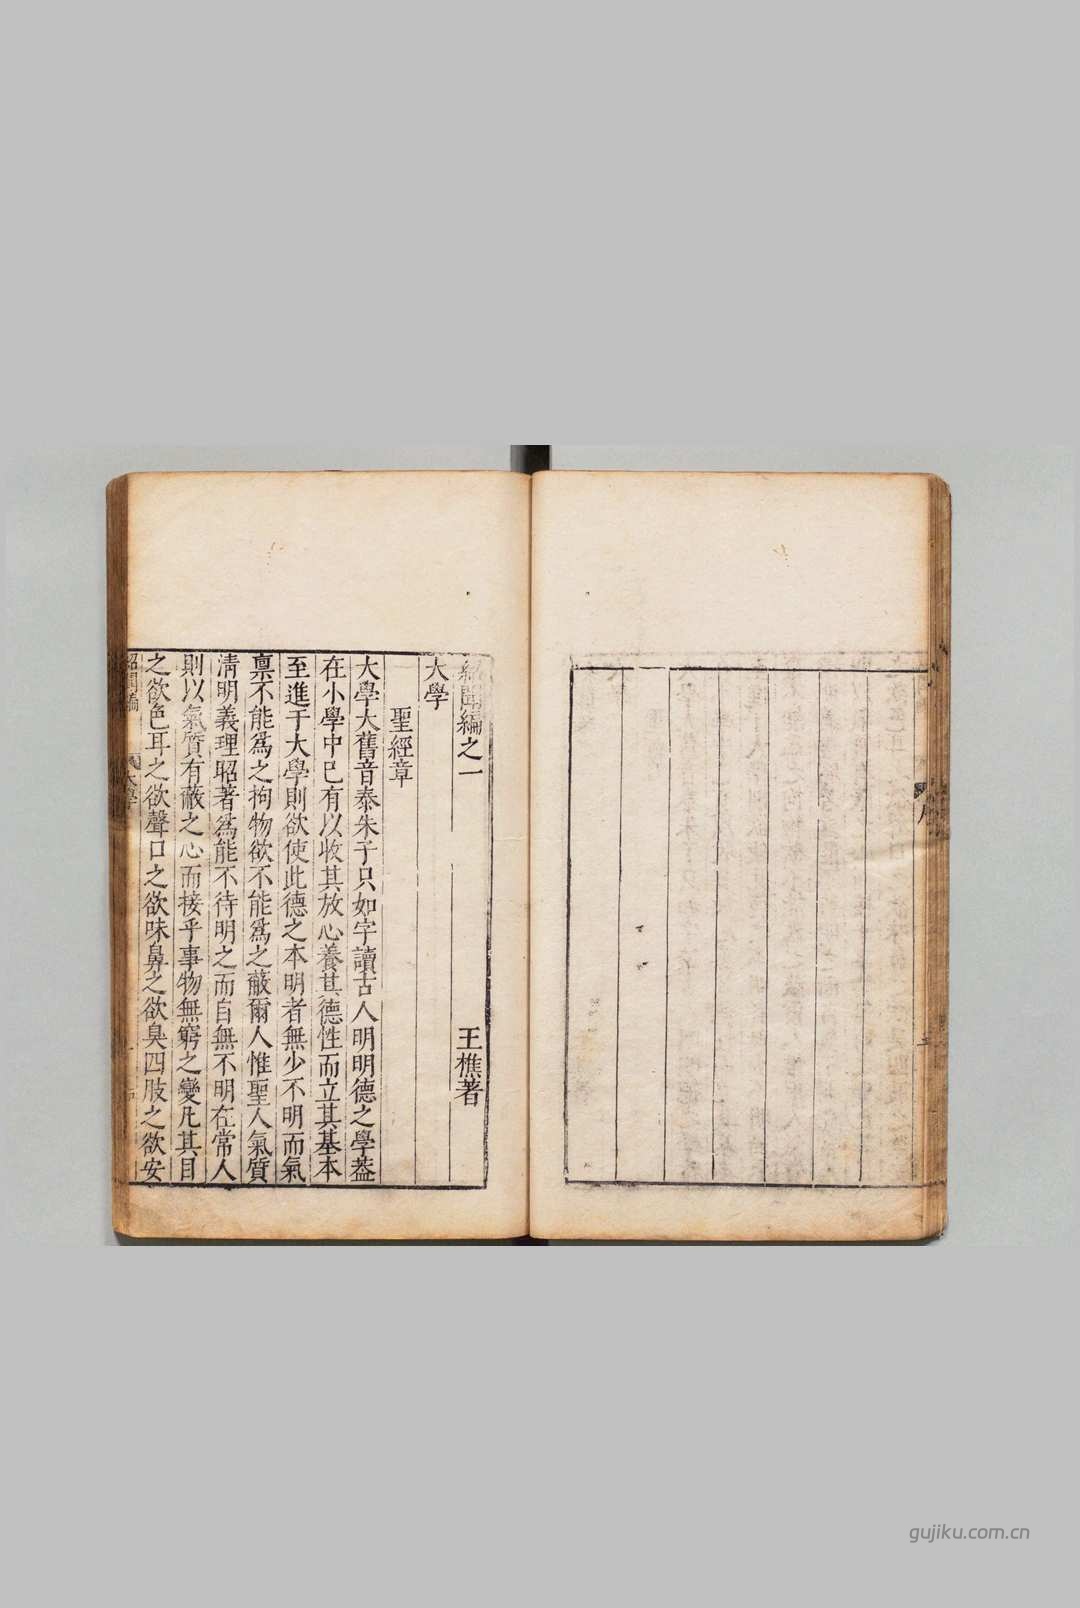 紹聞編之一
王樵著
大學
聖經章
大學大舊音泰朱子只如字讀古人明明德之學蓋
在小學中已有以收其放心養其德性而立其基本
至進于大學則欲使此德之本明者無少不明而氣
稟不能爲之拘物欲不能爲之蔽爾人惟聖人氣質
清明義理昭著爲能不待明之而自無不明在常人
則以氣質有蔽之心而接乎事物無窮之變凡其目
之欲色耳之欲聲口之欲味鼻之欲臭四肢之欲安
紹聞編
大學
gujiku.com.cn